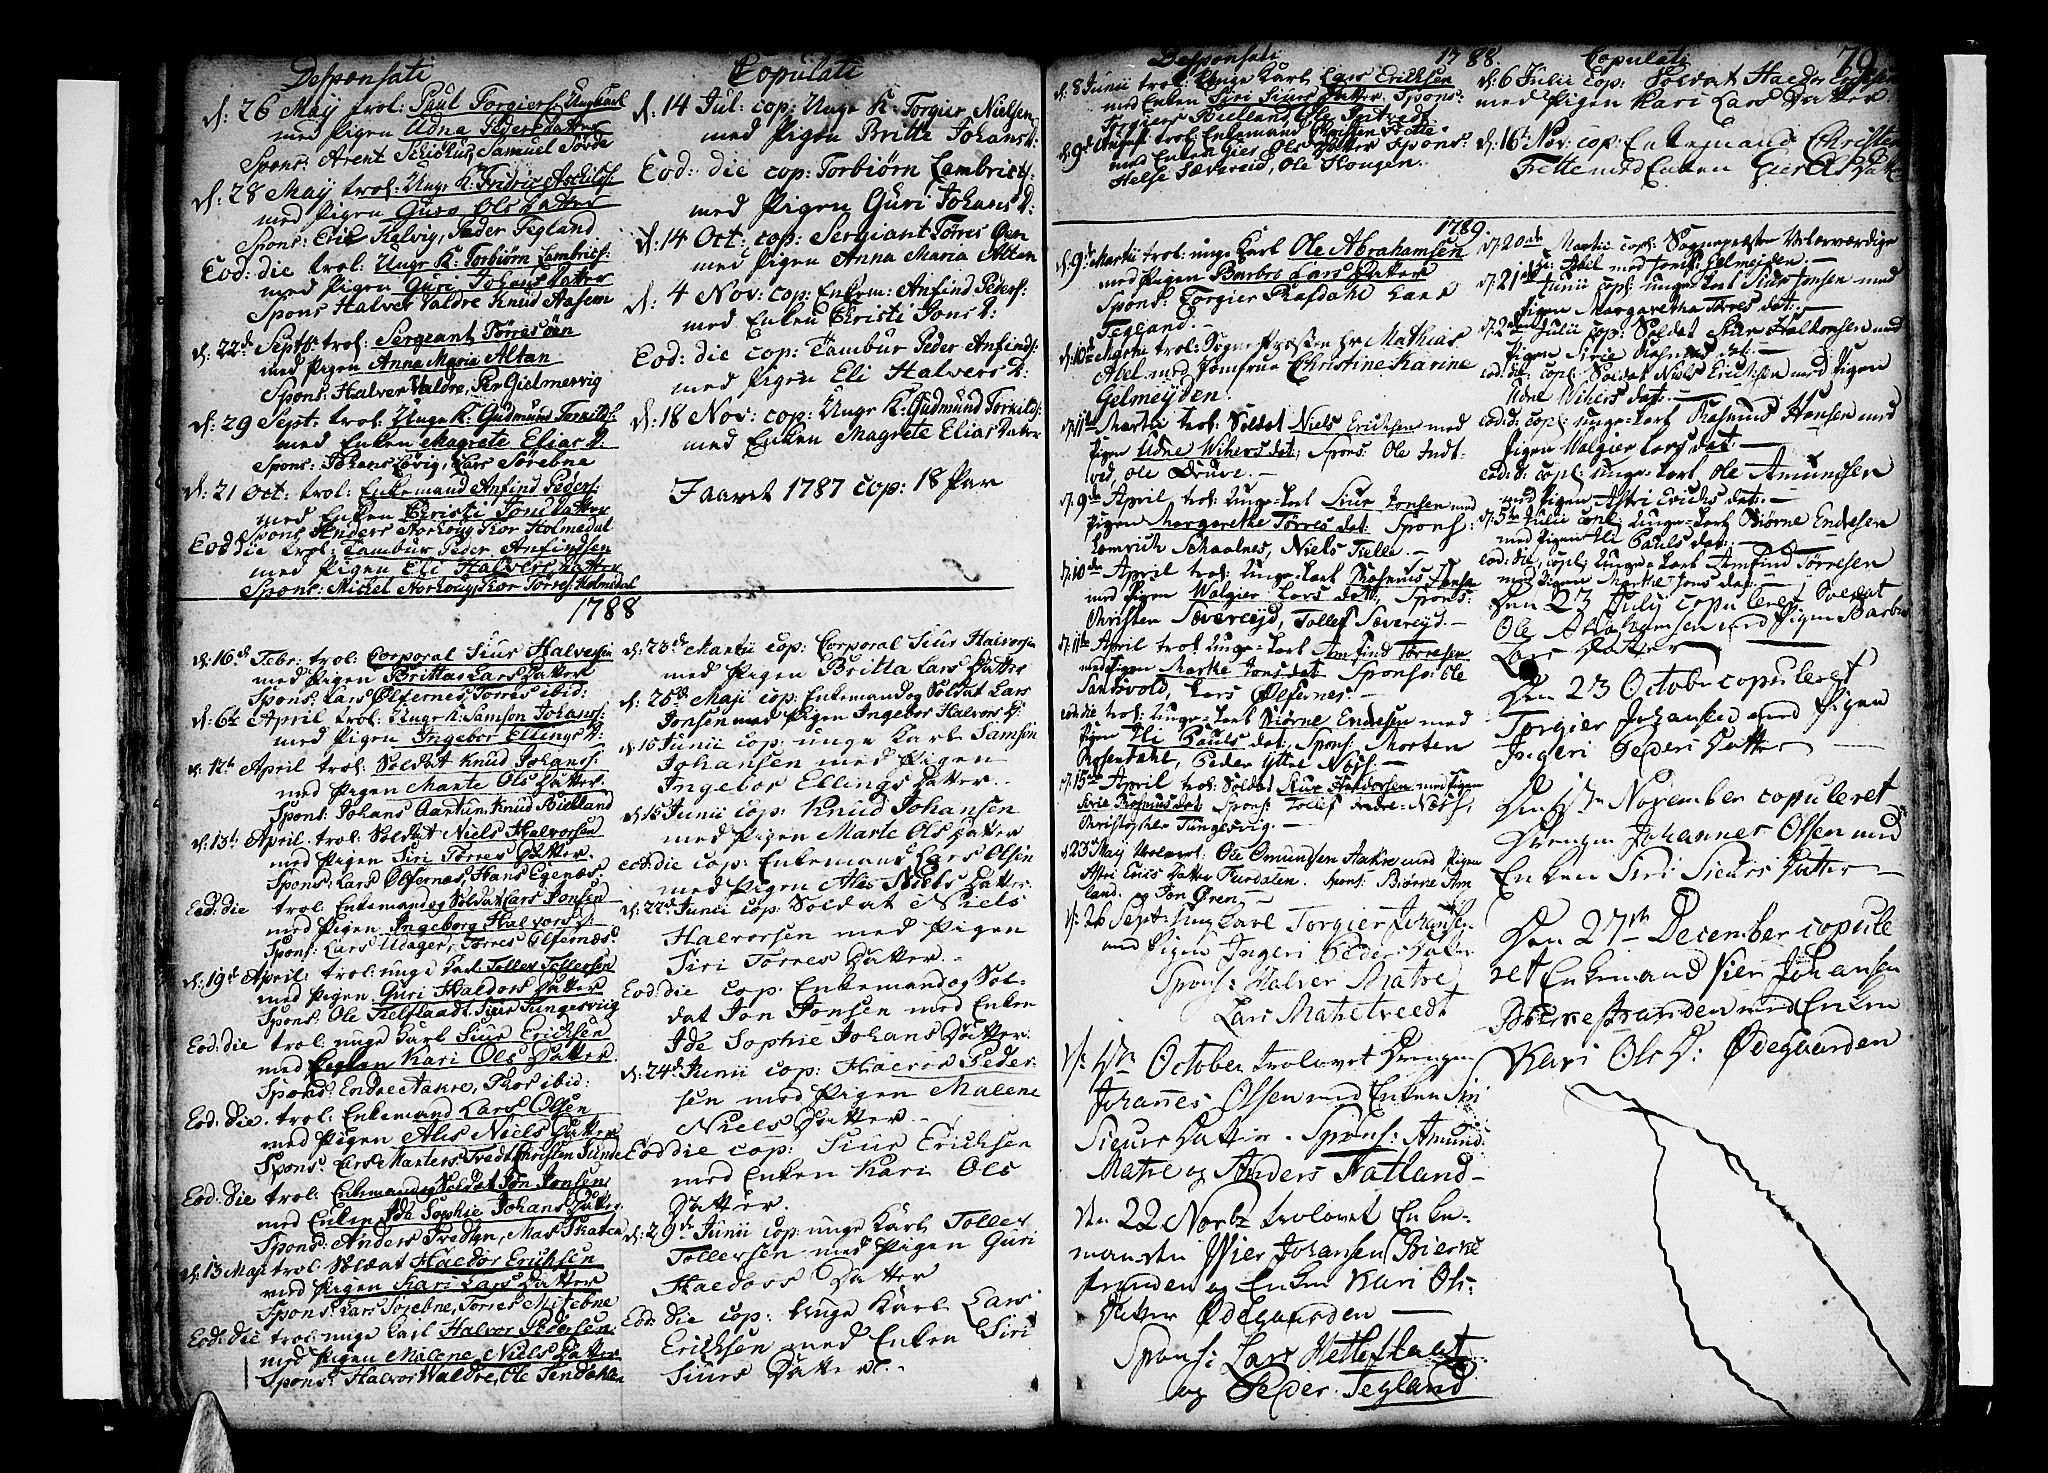 Desponsati
d: 26 May trol: Paul Torgiers: Ungkarl
med Pigen Udna Peders Datter
Spons: Arent Schiøkus, Samuel Torde
d: 28 May trol: Unge K: Fridric Aschilds:
med Pigen Guro Ols Datter
Spons: Eric Kelvig, Peder Tegland
Eod: die trol: Unge K: Torbiørn Lambricts:
med Pigen Guri Johans Datter
Spons Halver Valdre Knud Aasem
d: 22de Septb: trol: Sergeant Torres Øen
med Pigen Anna Maria Altan
Spons: Halver Valdre, Per Gielmervig
d: 29 Sept: trol: Unge K: Gudmund Torkilds:
med Enken Magrete Elias D:
Spons: Johans Løvig, Lars Sørebne
d: 21 Oct: trol: Enkemand Anfind Peders:
med Enken Christi Jons Datter
Spons Anders Norhoug Tor Holmedal
Eod die trol: Tambur Peder Anfindsen
med Pigen Eli Halvers Datter
Spons: Michel Norhoug Tor Torres: Holmedal
Copulati
d: 14 Jul: cop: Unge K: Torgier Nielsen
med Pigen Britte Johans D:
Eod: die cop: Torbiørn Lambricts:
med Pigen Guri Johans D:
d: 14 Oct: cop: Sergiant Torres Øen
med Pigen Anna Maria Altan
d: 4 Nov: cop: Enkem: Anfind Peders:
med Enken Christi Jons D:
Eod: die cop: Tambur Peder Anfinds:
med Pigen Eli Halvers D:
d: 18 Nov: cop: Unge K: Gudmund Torkilds:
med Enken Magrete Elias Datter
I aaret 1787 cop: 18 Par
1788
d: 16d Febr: trol: Corporal Siur Halversen
med Pigen Britta Lars Datter
Spons: Lars Ølfernes Torres ibid:
d: 6te April trol: Unge K: Samson Johans:
med Pigen Ingebor Ellings D:
d: 12te April trol: Soldat Knud Johans:
med Pigen Marte Ols Datter
Spons: Johans Aartun, Knud Bielland
d: 13t: April trol: Soldat Niels Halvorsen
med Pigen Siri Torres Datter.
Spons: Lars Ølfernæs, Hans Egenæs.
Eod: die trol: Enkemand og Soldat Lars Jonsen
med Pigen Ingeborg Halvors D:
Spons: Lars Udager, Torres Ølfernæs.
d: 19d April: trol: unge Karl Tollev Tollevsen
med Pigen Guri Haldors Datter
Spons: Ole Tielflaadt Siur Tungesviig
Eod: die trol: unge Karl Siur Ericksen
med Enken Kari Ols Datter.
Spons: Endre Aakre, Thor ibid:
Eod: die. trol: Enkemand Lars Olsen
med Pigen Ales Niels Datter
Spons Lars Marters Tredt Christen Tunde
Eod: die trol: Enkemand og Soldat Jon Jonsen
med Enken Ide Sophie Johans Datter
Spons: Anders Tredten, Mas Skaten
d: 13 Maji trol: Soldat Haldor Ericksen
med Pigen Kari Lars Datter
Spons: Lars Sørebne, Torres Mitebne
Eod: die trol: unge Karl Halvor Pedersen
med Pigen Malene Niels Datter
Spons: Halvor Waldre, Ole Tendalen
d: 23de Martii cop: Corporal Siur Halvorsen
med Pigen Britta Lars Datter
d: 25de Maji cop: Enkemand og Soldat Lars
Jonsen med Pigen Ingebor Halvors D:
d: 15 Junii cop: unge Karl Samson
Johansen med Pigen
Ingebor Ellings Datter.
d: 15 Junii cop: Knud Johansen
med Pigen Marte Ols Datter
eod: die cop: Enkemand Lars Olsen
med Pigen Ales Niels Datter.
d: 22d: Junii cop: Soldat Niels
Halvorsen med Pigen
Siri Torres Datter.
Eod: die cop: Enkemand og Sol-
dat Jon Jonsen med Enken
Ide Sophie Johans Datter.
d: 24d Junii cop: Halvor Peder-
sen med Pigen Malene
Niels Datter.
Eod die cop: Siur Ericksen
med Enken Kari Ols
Datter.
d: 29de Junii cop: unge Karl Tollev
Tollevsen med Pigen Guri
Haldors Datter
Eod: die cop: Unge Karl Lars
Ericksen med Enken Siri
Siurs Datter.
Desponsati 1788. Copulati 79.
d: 8 Junii trol: Unge Karl Lars Ericksen
med Enken Siri Siurs Datter. Spons:
Torgiers Bielland, Ole Intvedt
d: 9d August trol: Enkemand Christen Frette
med Enken Gier Ols Datter Spons:
Helge Sævereid, Ole Hougen.
d: 6 Julii cop: Soldat Haldor Ericksen
med Pigen Kari Lars Datter.
d: 16te Nov: cop: Enkemand Christen
Frette med Enken Gier Ols Datter
1789.
d: 9de Martii trol: unge Karl Ole Abrahamsen
med Pigen Barbro Lars Datter
Spons: Torgier Rafdahl Lars
Tegland.
d: 10de Martii trol: Sogne Præsten Hr Mathias
Abel med Jomfrue Christine Karine
Gelmeyden.
d: 11te Martii trol: Soldat Niels Erichsen med
Pigen Udne Wihers dat: Spons: Ole Indt-
ved, Ole Druve.
d: 9de April trol: Unge-Karl Siur Jonsen med
Pigen Margarethe Torres dat: Spons:
Lamrich Schaalnes, Niels Tielle.
d: 10de April trol: Unge-Karl Rasmus Hansen
med Pigen Walgier Lars dat: Spons:
Christen Sævereyd, Tollef Sævereyd.
d: 11te April trol: Unge-Karl Amfind Torresen
med Pigen Marthe Jons dat: Spons: Ole
Sandvold, Lars Ølfernes.
eod: die trol: Unge-Karl Biørne Endresen med
Pigen Eli Pauls dat: Spons: Morten
Rosendahl, Peder Yttre Næss.
d: 15de April trol: Soldat Siur Haldorsen med Pigen
Sirie Rasmus dat: Spons: Tollef Indre-Næss,
Christopher Tungesvig.
d: 23de Maji trolovet: Ole Omundsen Aakre med Pigen
Astri Erics Datter Furdalen. Spons: Biørne Am-
land. og Jon Øren
d: 26 Sept: Ung Karl Torgier Johansen
med Pigen Ingeri Peders Datter
Spons: Halver Matre
Lars Matretredt
d: October trolovet Drengen
Johannes Olsen med Enken Siri
Sieurs Datter. Spons: Amund
Matre og Anders Fatland
den 22 Novbr trolovet Enke-
manden Wier Johansen Bierke
stranden og Enken Kari Ols-
Datter Ødegaarden
Spons: Lars Hetleflaat
og Peder Tegland
d: 20de Martii cop: Sognepræsten Velærværdige
Hr: Abel med Jomfr Gelmeiden.
d: 21de Junii cop: unge-Karl Siur Jonsen med
Pigen Margaretha Torres dat:
d: 2den Julii cop: Soldat Siur Haldorsen med
Pigen Sirie Rasmus dat:
eod: die: copl: Soldat Niels Erichsen med Pigen
Udne Wihers dat:
eod: d: copl: unge-Karl Rasmus Hansen med
Pigen Walgier Lars dat:
eod: d: copl: unge-Karl Ole Amundsen
med Pigen Astri Erichs dat:
d: 5te Julii copl: Unge-Karl Biørne Endresen
med Pigen Eli Pauls dat:
eod: die, copl: Unge-Karl Amfind Torresen
med Pigen Marthe Jons dat:
Den 23 July copuleret Soldat
Ole Abrahamsen med Pigen Barbro
Lars Datter
Den 23 October copuleret
Torgier Johansen med Pigen
Ingeri Peders Datter
Den November copuleret
Drengen Johannes Olsen med
Enken Siri Sieurs Datter
Den 27de December copule
ret Enkemand Wier Johansen
Bierkestranden med Enken
Kari Ols D: Ødegaarden